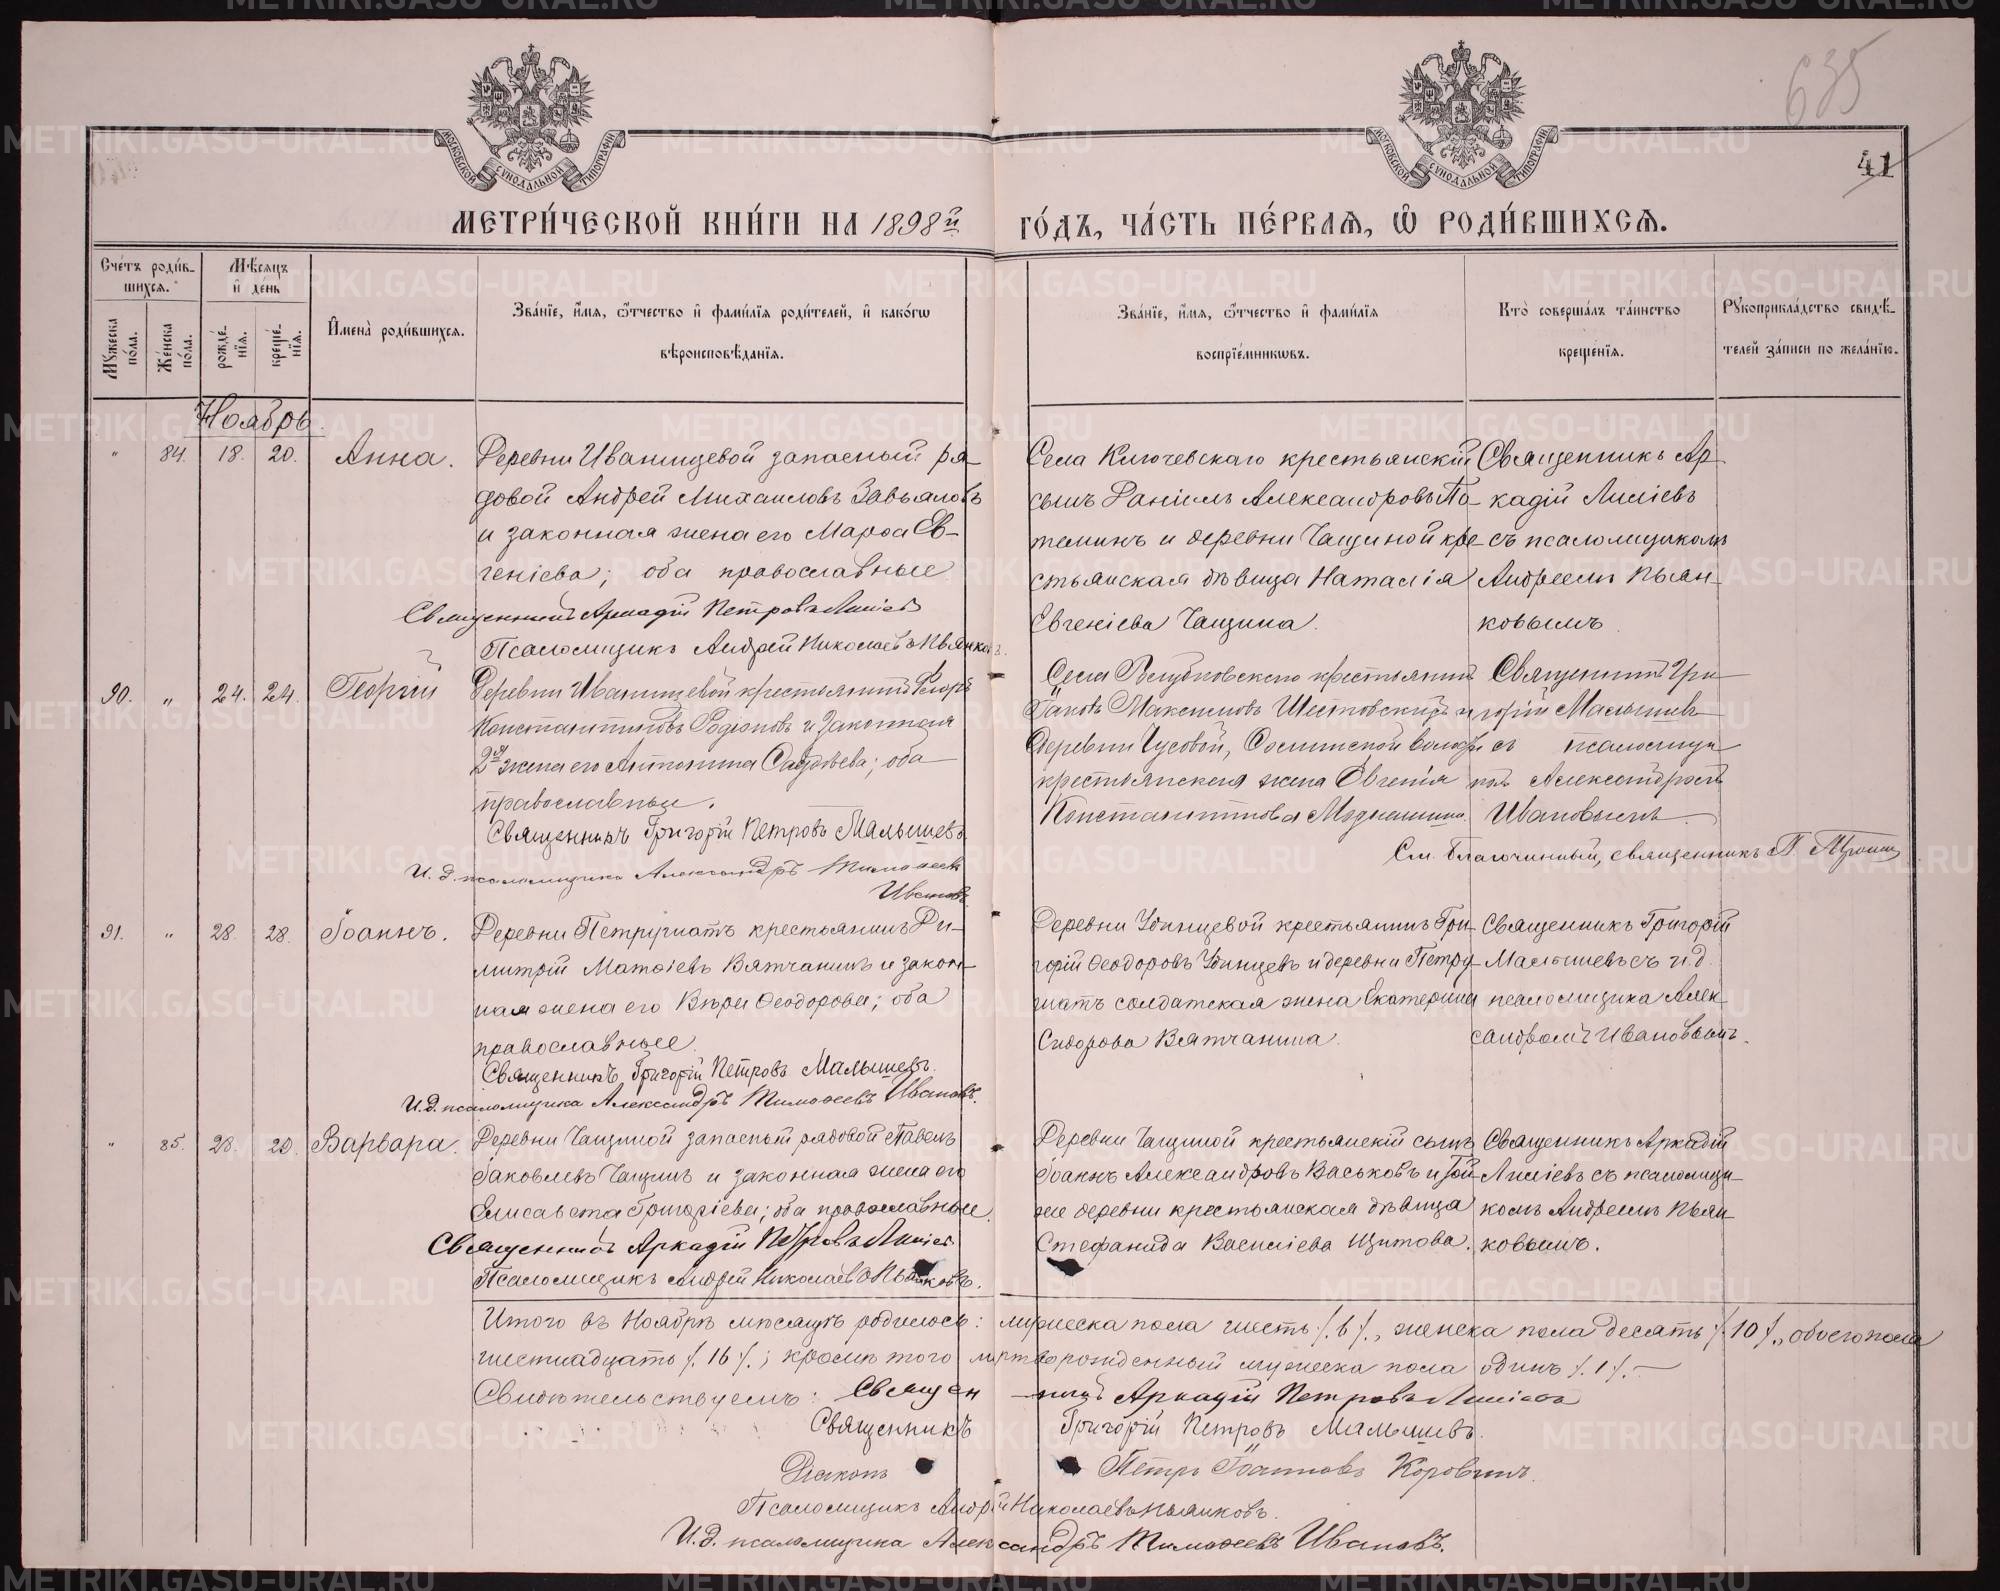 635
41
МОСКОВСКОЙ СУНОДАЛЬНОЙ ТИПОГРАФІИ
МОСКОВСКОЙ СУНОДАЛЬНОЙ ТИПОГРАФІИ
МЕТРИ́ЧЕСКОЙ КНИ́ГИ НА 1898й ГО́ДЪ, ЧА́СТЬ ПЕ́РВАЯ, Ѿ РОДИ́ВШИХСЯ.
Сче́тъ роди́в-
шихся.
Мѣ́сяцъ
и҆ де́нь
Мꙋ́жеска по́ла.
Же́нска по́ла.
рожде́-нїя.
креще́-нїя.
И҆мена̀ роди́вшихся.
Зва́нїе, и҆́мя, ѻ҆́тчество и҆ фами́лїя роди́телей, и҆ како́гѡ
вѣроисповѣ́данїя.
Зва́нїе, и҆́мя, ѻ҆́тчество и҆ фами́лїя
воспрїе́мникѡвъ.
Кто̀ соверша́лъ та́инство
креще́нїя.
Рꙋкоприкла́дство свидѣ́-
телей за́писи по жела́нїю.
Ноябрь.
" 84. 18. 20. Анна.
Деревни Иванищевой запасный ря-
довой Андрей Михаиловъ Завьяловъ
и законная жена его Марѳа Ев-
геніева; оба православные
Священникъ Аркадій Петровъ Лисіевъ
Псаломщикъ Андрей Николаевъ Пьянковъ.
Села Ключевскаго крестьянскій
сынъ Даніилъ Александровъ Па-
теминъ и деревни Чащиной кре-
стьянская дѣвица Наталія
Евгеніева Чащина.
Священникъ Ар-
кадій Лисіевъ
съ псаломщикомъ
Андреемъ Пьян-
ковымъ
90. " 24. 24. Георгій
Деревни Иванищевой крестьянинъ
Константиновъ Родіоновъ и законная
2я жена его Антонина Савдѣева; оба
православные.
Священникъ Григорій Петровъ Малышевъ
И. д. псаломщика Александръ Тимоѳеевъ
Ивановъ
Села крестьянинъ
Іаковъ Максимовъ Шестовскихъ и
деревни Чусовой, волости
крестьянская жена Евгенія
Константинова
Священникъ Гри-
горій Малышевъ
съ псаломщи-
комъ Александромъ
Ивановымъ
См. благочинный, священникъ
91. " 28. 28. Іоаннъ.
Деревни Петрунятъ крестьянинъ Ди-
митрій Матѳіевъ Вятчанинъ и закон-
ная жена его Вѣра Ѳеодорова; оба
православные.
Священникъ Григорій Петровъ Малышевъ.
И.д. псаломщика Александръ Тимоѳеевъ Ивановъ.
Деревни Убинцевой крестьянинъ Гри-
горій Ѳеодоровъ Убинцевъ и деревни Петру-
нятъ солдатская жена Екатерина
Сидорова Вятчанина.
Священникъ Григорій
Малышевъ съ и.д.
псаломщика Алек-
сандромъ Ивановымъ.
" 85. 28. 20. Варвара.
Деревни Чащиной запасный рядовой Павелъ
Іаковлевъ Чащинъ и законная жена его
Елисавета Григоріева; оба православные.
Священникъ Аркадій Петровъ Лисіевъ
Псаломщикъ Андрей Николаевъ Пьянковъ.
Деревни Чащиной крестьянскій сынъ
Іоаннъ Александровъ Васьковъ и той
же деревни крестьянская дѣвица
Стефанида Василіева Щитова.
Священникъ Аркадій
Лисіевъ съ псаломщи-
комъ Андреемъ Пьян-
ковымъ.
Итого въ Ноябрѣ мѣсяцѣ родилось: мужеска пола шесть /.6/., женска пола десять /.10/., обоего пола
шестнадцать /.16/.; кромѣ того мертворожденный мужеска пола одинъ /.1/.
Свидѣтельствуемъ: Священникъ Аркадій Петровъ Лисіевъ
Священникъ Григорій Петровъ Малышевъ.
Діаконъ Петръ Іоанновъ Коровинъ.
Псаломщикъ Андрей Николаевъ Пьянковъ.
И.д. псаломщика Александръ Тимоѳеевъ Ивановъ.
METRIKI.GASO-URAL.RU